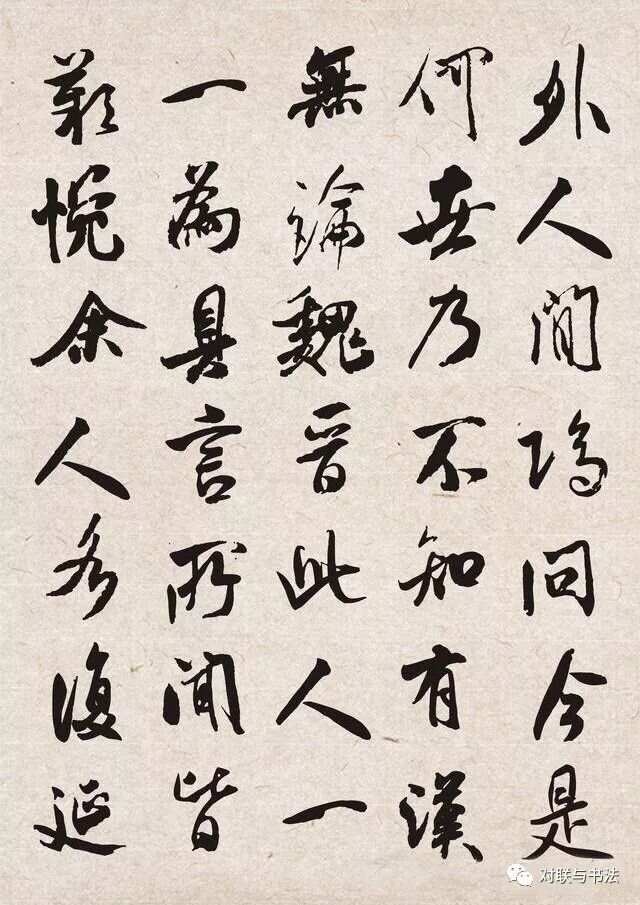 外人間隔問今是
何世乃不知有漢
無論魏晉此人一
一為具言所聞皆
歎惋余人各復延
对联与书法